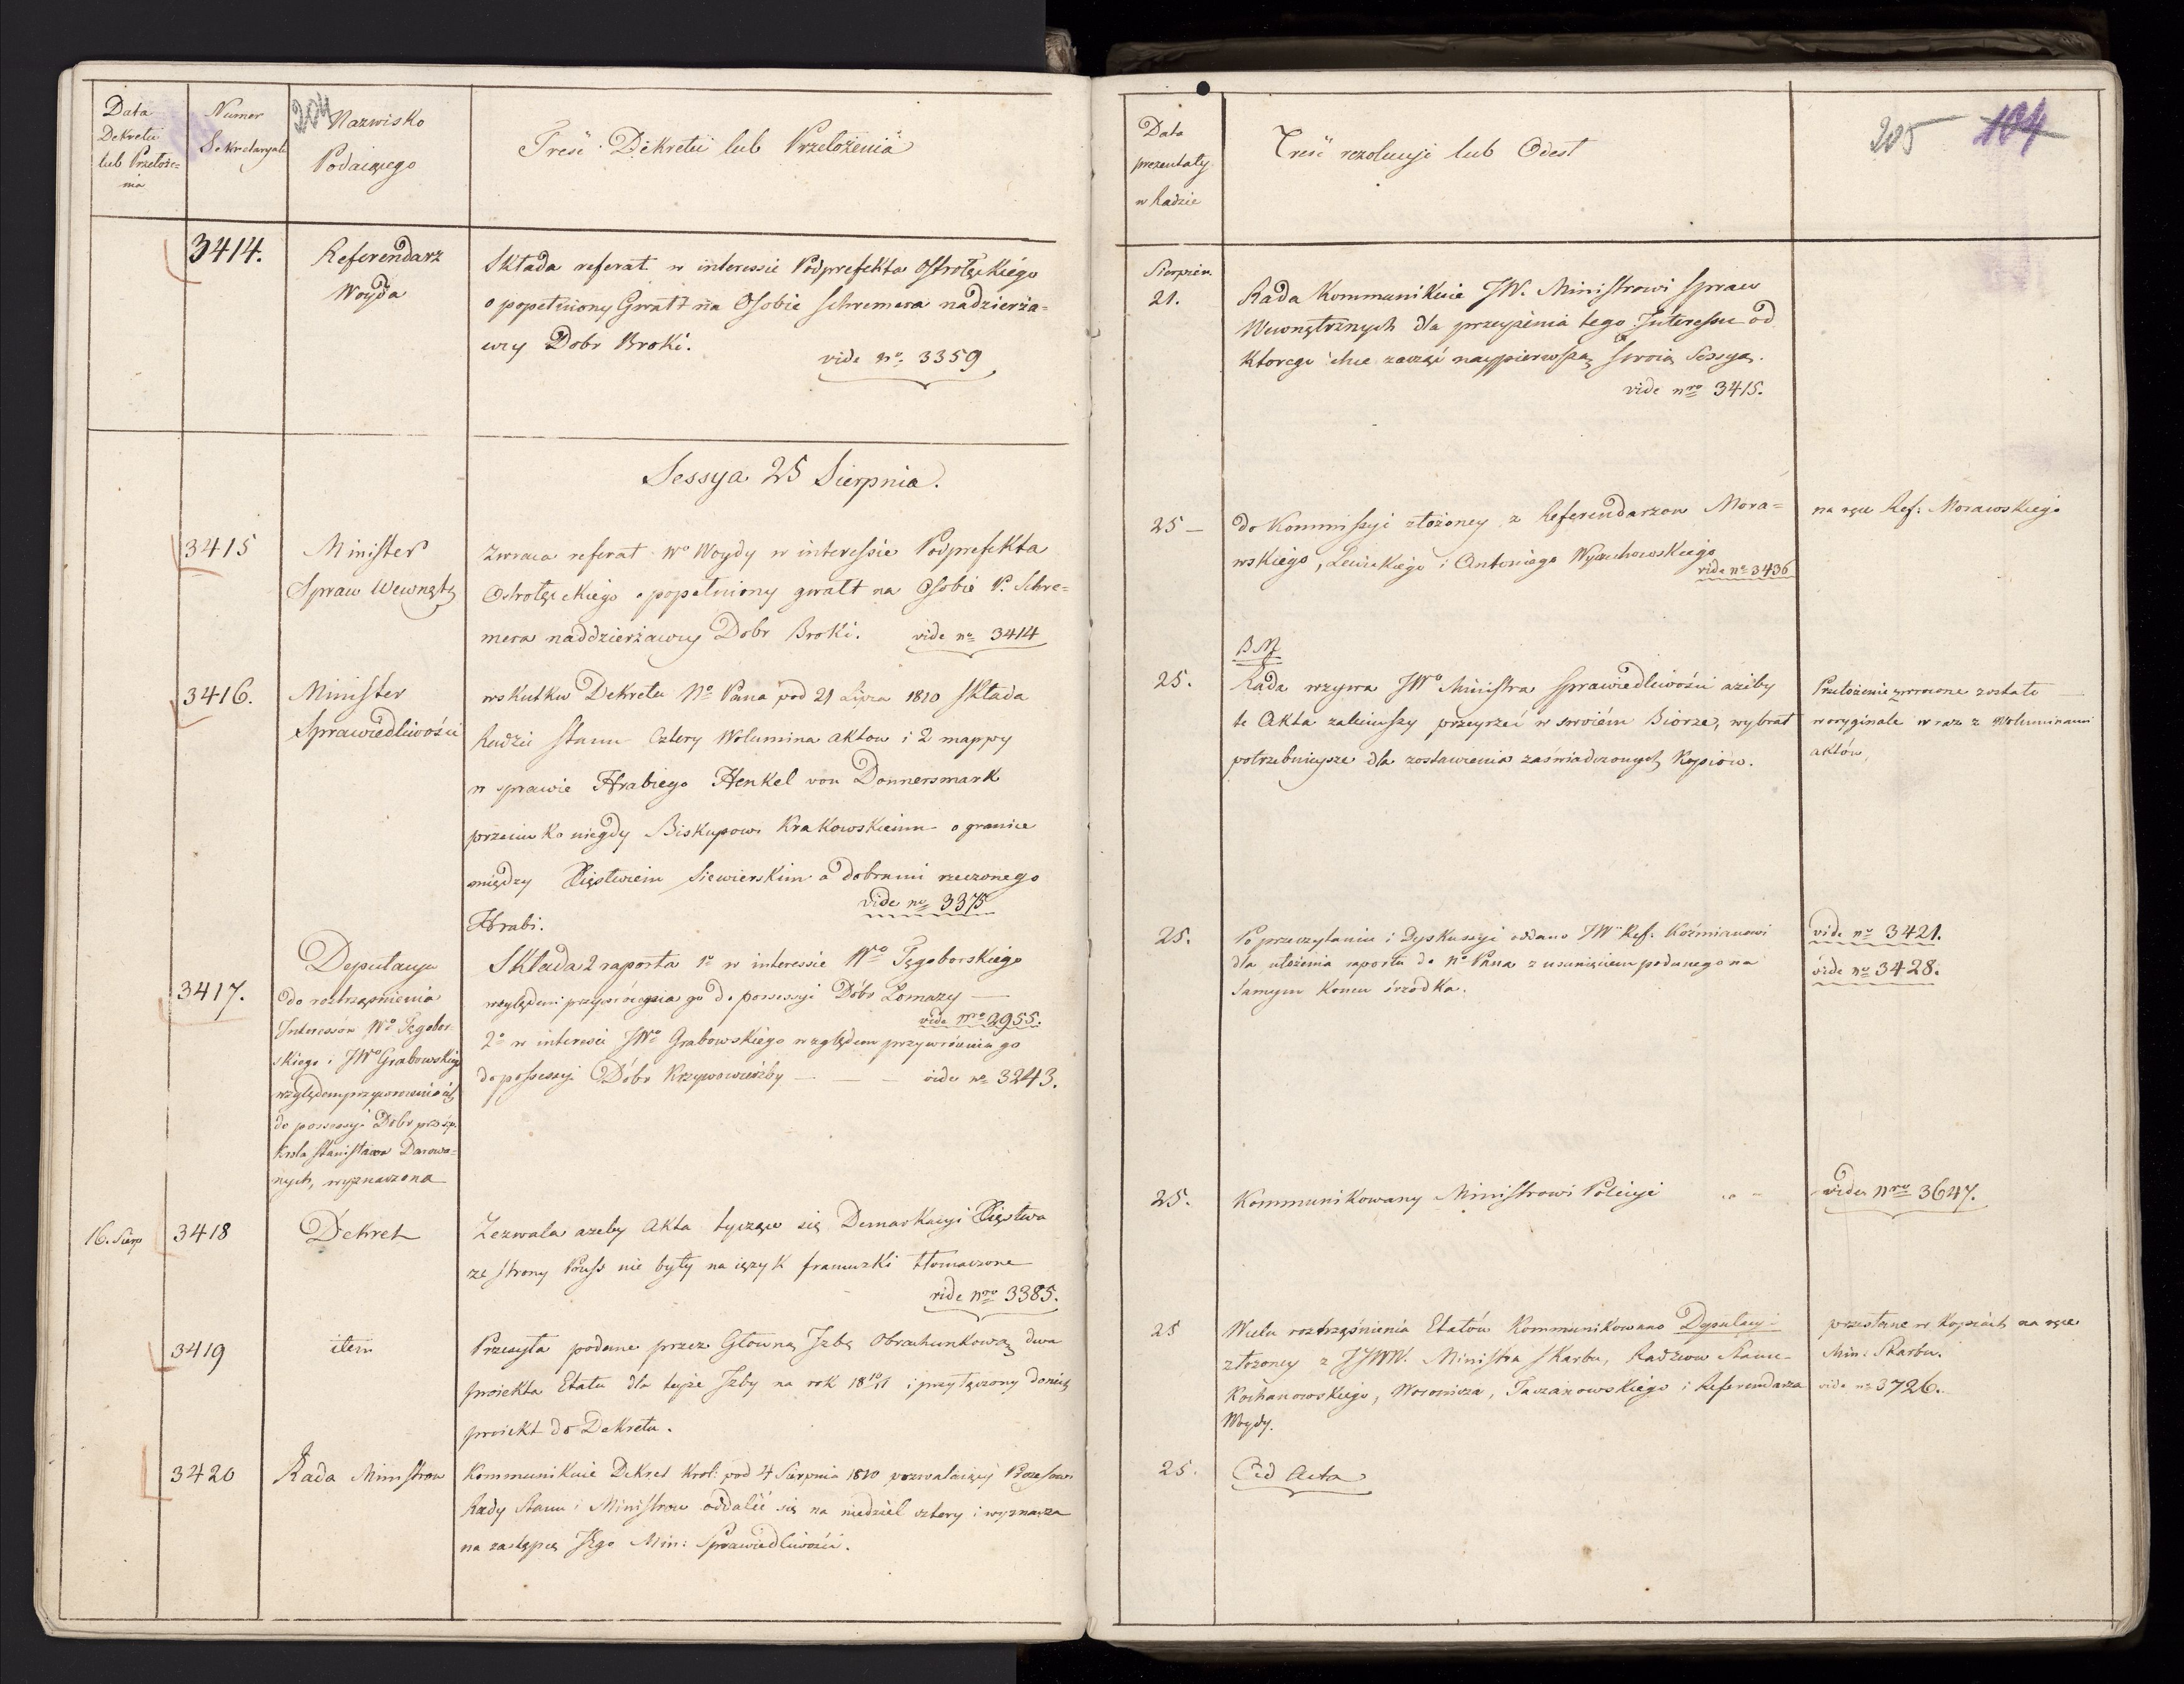 Data
Dekretu
lub Przełoże=
nia
Numer
Sekretaryatu
204
Nazwisko
Podaiącego
Treść Dekretu lub Przełożenia
3414.
Referendarz
Woyda
Składa referat w interessie Podprefekta Ostrołęckiego
o popełniony Gwałt na Osobie Schremera nadzierża=
wcy Dobr Broki.
vide no 3359
Sessya 25 Sierpnia.
3415
Minister
Spraw Wewnętz
Zwraca referat Wo Woydy w interessie Podprefekta
Ostrołęckiego o popełniony gwałt na Osobie P. Schre=
mera naddzierżawcy Dobr Broki. vide no 3414
3416.
Minister
Sprawiedliwości
wskutku Dekretu No Pana pod 21 Lipca 1810 składa
Radzie Stanu Cztery Wolumina aktow i 2 mappy
w sprawie Hrabiego Henkel von Donnersmark
przeciwko niegdy Biskupowi Krakowskiemu o granice
między Xięstwem Siewierskim a dobrami rzeczonego
Hrabi.
vide no 3375
3417.
Deputacya
do roztrząśnienia
Interessów Wo Tęgobor
skiego i JWo Grabowskiego
względem przywrocenia ich
do possessyi Dobr przez śp.
Krola Stanisława Darowa=
nych, wyznaczona
Składa 2 raporta 1o w interessie Wo Tęgoborskiego
względem przywrócenia go do possessyi Dóbr Łomazy —
vide nro 2955.
2o w interessie JWo Grabowskiego względem przywrócenia go
do possessyi Dóbr Krzywowierzby — — — vide no 3243.
16. Sierp
3418
Dekret
Zezwala azeby Akta tyczące się Demarkacyi Xięstwa
ze strony Pruss nie były na ięzyk francuzki tłomaczone
vide nro 3385.
3419
item
Przesyła podane przez Głowną Izbę Obrachunkową dwa
proiekta Etatu dla teyże Izby na rok 1810/11 i przyłączony do nich
proiekt do Dekretu.
3420
Rada Ministrow
Kommunikuie Dekret Krol: pod 4 Sierpnia 1810 pozwalaiący Prezesowi
Rady Stanu i Ministrow oddalić się na niedziel cztery i wyznacza
na zastępcę Jego Min: Sprawiedliwości.
Data
prezentaty
w Radzie
Treść rezolucyi lub Odest
205 104
Sierpień
21.
Rada Kommunikuie JW. Ministrowi Spraw
Wewnętrznych dla przeyrzenia tego Interessu od
ktorego chce zacząć nayppierwszą swoią Sessyą.
vide nro 3415.
25 —
do Kommissyi złożoney z Referendarzow Mora=
wskiego, Lewickiego i Antoniego Wyczechowskiego
vide no 3436
na ręce Ref: Morawskiego
B.M
25.
Rada wzywa JWo Ministra Sprawiedliwości ażeby
te Akta zaleciwszy przeyrzeć w swoiém Biórze, wybrał
potrzebnieysze dla zostawienia zaświadczonych Kopiow.
Przełożenie zwrocone zostało —
w oryginale wraz z Woluminami
aktów,
25.
Po przeczytaniu i Dyskussyi oddano JWo Ref. Koźmianowi
dla ułożenia raportu do No Pana z usunięciem podanego na
samym Koncu śrzodka.
vide no 3421.
vide no 3428.
25.
Kommunikowany Ministrowi Policyi
vide nro 3647.
25
W celu roztrząśnienia Etatów Kommunikowano Deputacyi
złożoney z JJWW. Ministra Skarbu, Radzcow Stanu
Kochanowskiego, Woronicza, Taczanowskiego i Referendarza
Woydy.
przesłane w Kopiach na ręce
Min: Skarbu.
vide no 3726.
25.
Ad Acta